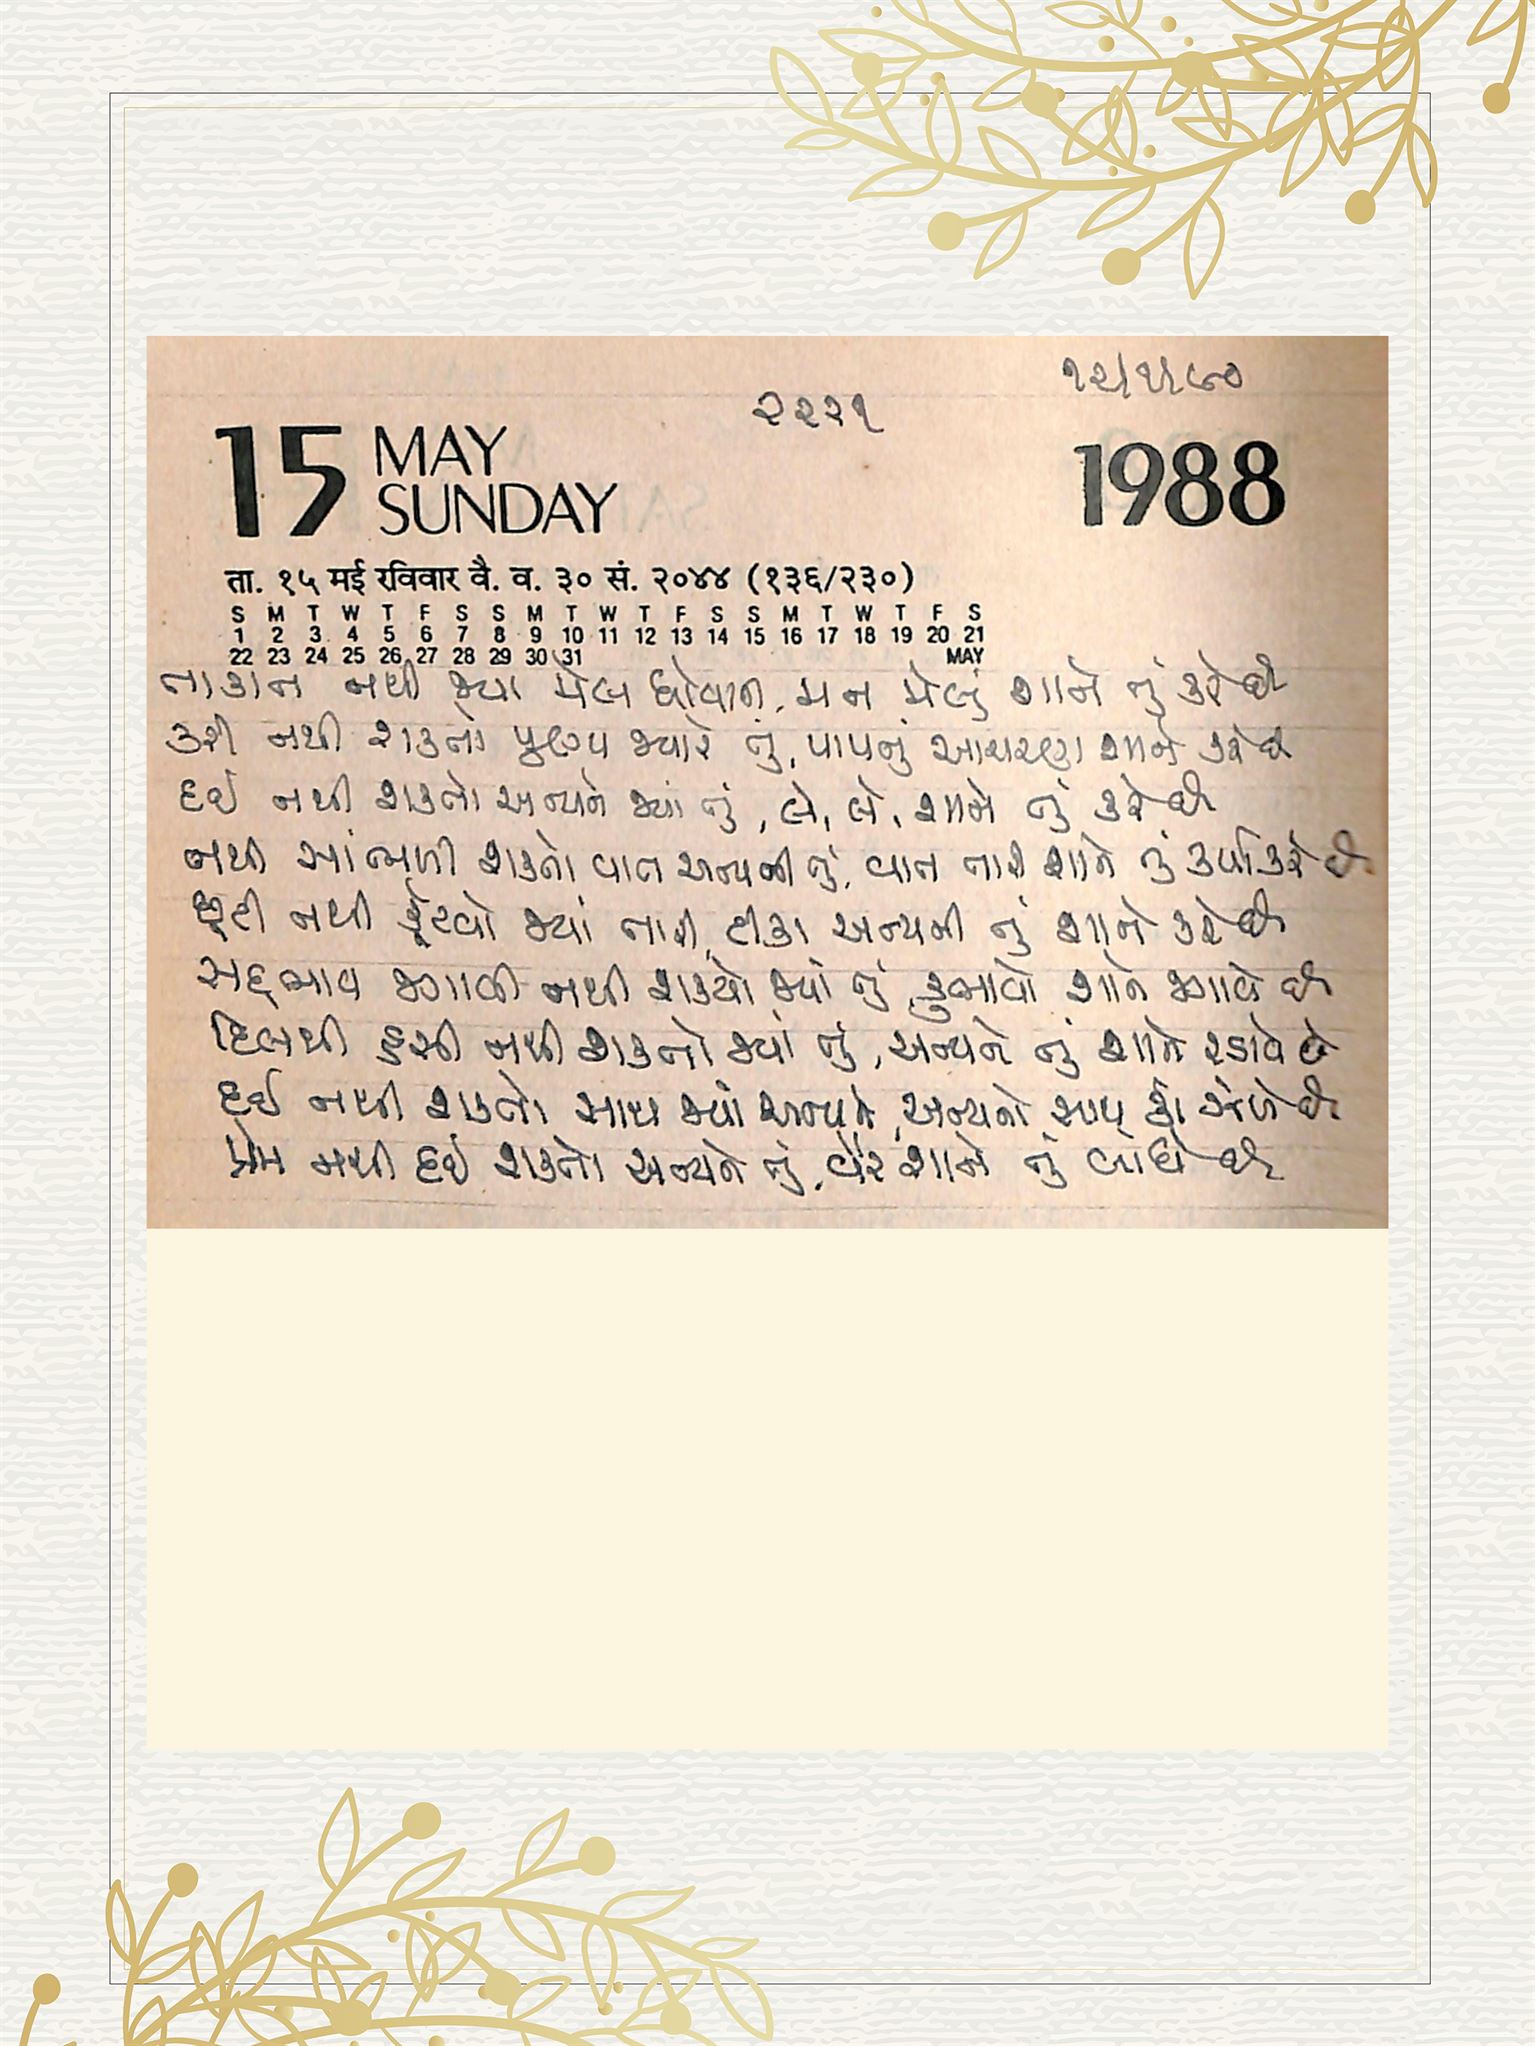 ૧૨/૧/૯૦
૨૨૨૧
15 MAY SUNDAY 1988
ता. १५ मई रविवार वै. व. ३० सं. २०४४ (१३६/२३०)
S M T W T F S S M T W T F S S M T W T F S
1 2 3 4 5 6 7 8 9 10 11 12 13 14 15 16 17 18 19 20 21
22 23 24 25 26 27 28 29 30 31 MAY
તાકાત નથી જ્યાં મેલ ધોવાની, મન મેલું શાને તું કરે છે
કરી નથી શકતો પુણ્ય જ્યારે તું, પાપનું આચરણ શાને કરે છે
દઈ નથી શકતો અન્યને જ્યાં તું, લે, લે, શાને તું કરે છે
નથી સાંભળી શકતો વાત અન્યની તું, વાત તારી શાને તું કર્યા કરે છે
છૂટી નથી કુટેવો જ્યાં તારી, ટીકા અન્યની તું શાને કરે છે
સદ્દભાવ જગાવી નથી શક્યો જ્યાં તું, કુભાવો શાને જગાવે છે
દિલથી હસી નથી શકતો જ્યાં તું, અન્યને તું શાને રડાવે છે
દઈ નથી શકતો સાથ જ્યાં અન્યને, અન્યનો સાથ શેં ઝંખે છે
પ્રેમ નથી દઈ શકતો અન્યને તું, વેર શાને તું બાંધે છે